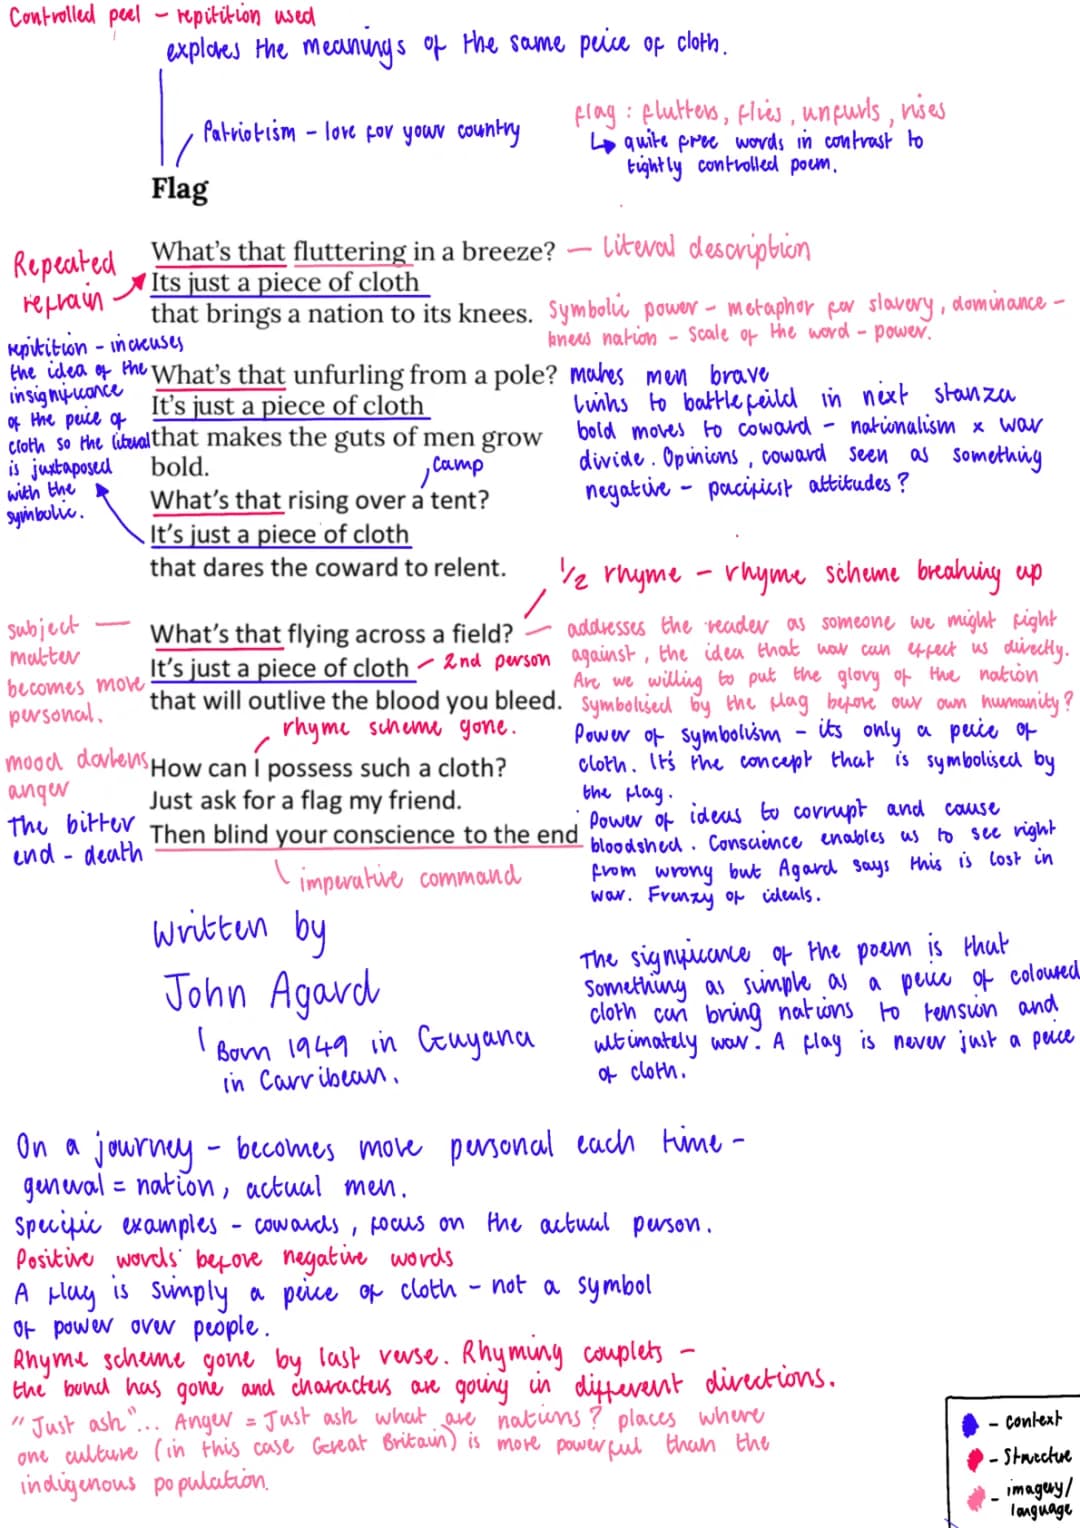 Controlled peel - repitition used
explores the meanings of the same peice of cloth.
Patriotism - love for your country
flag : flutters, flies, unfurls, rises
↳ quite free words in contrast to
tightly controlled poem.
Flag
What's that fluttering in a breeze? - Literal description
Its just a piece of cloth
that brings a nation to its knees.
Repeated
refrain
Symbolic power - metaphor for slavery, dominance -
knees nation - Scale of the word - power.
repitition - increases
the idea of the
insignificance
of the peice of
cloth so the literal
is juxtaposed
with the
symbolic.
What's that unfurling from a pole?
It's just a piece of cloth
that makes the guts of men grow
bold.
makes men brave
Links to battlefeild in next stanza
bold moves to coward - nationalism x war
divide. Opinions, coward seen as something
negative - pacifist attitudes?
camp
What's that rising over a tent?
It's just a piece of cloth
that dares the coward to relent.
1/2 rhyme - rhyme scheme breaking up
subject
matter
becomes more
personal.
What's that flying across a field?
It's just a piece of cloth - 2nd person
that will outlive the blood you bleed.
addresses the reader as someone we might fight
against, the idea that war can effect us directly.
Are we willing to put the glory of the nation
Symbolised by the flag before our own humanity?
rhyme scheme gone.
Power of symbolism - its only a peice of
cloth. It's the concept that is symbolised by
the flag.
mood darkens
anger
The bitter
end - death
How can I possess such a cloth?
Just ask for a flag my friend.
Then blind your conscience to the end
Power of ideas to corrupt and cause
bloodshed. Conscience enables us to see right
from wrong but Agard says this is lost in
war. Frenzy of ideals.
imperative command
Written by
John Agard
Born 1949 in Guyana
in Carribean.
The significance of the poem is that
something as simple as a peice of coloured
cloth can bring nations to tension and
ultimately war. A flag is never just a peice
of cloth.
On a journey - becomes more personal each time -
general = nation, actual men.
Specific examples - cowards, focus on the actual person.
Positive words before negative words
A flag is simply a peice of cloth - not a symbol
of power over people.
Rhyme scheme gone by last verse. Rhyming couplets -
the bond has gone and characters are going in different directions.
"Just ask"... Anger = Just ask what are nations? places where
one culture (in this case Great Britain) is more powerful than the
indigenous population.
- context
- Structure
- imagery/
language